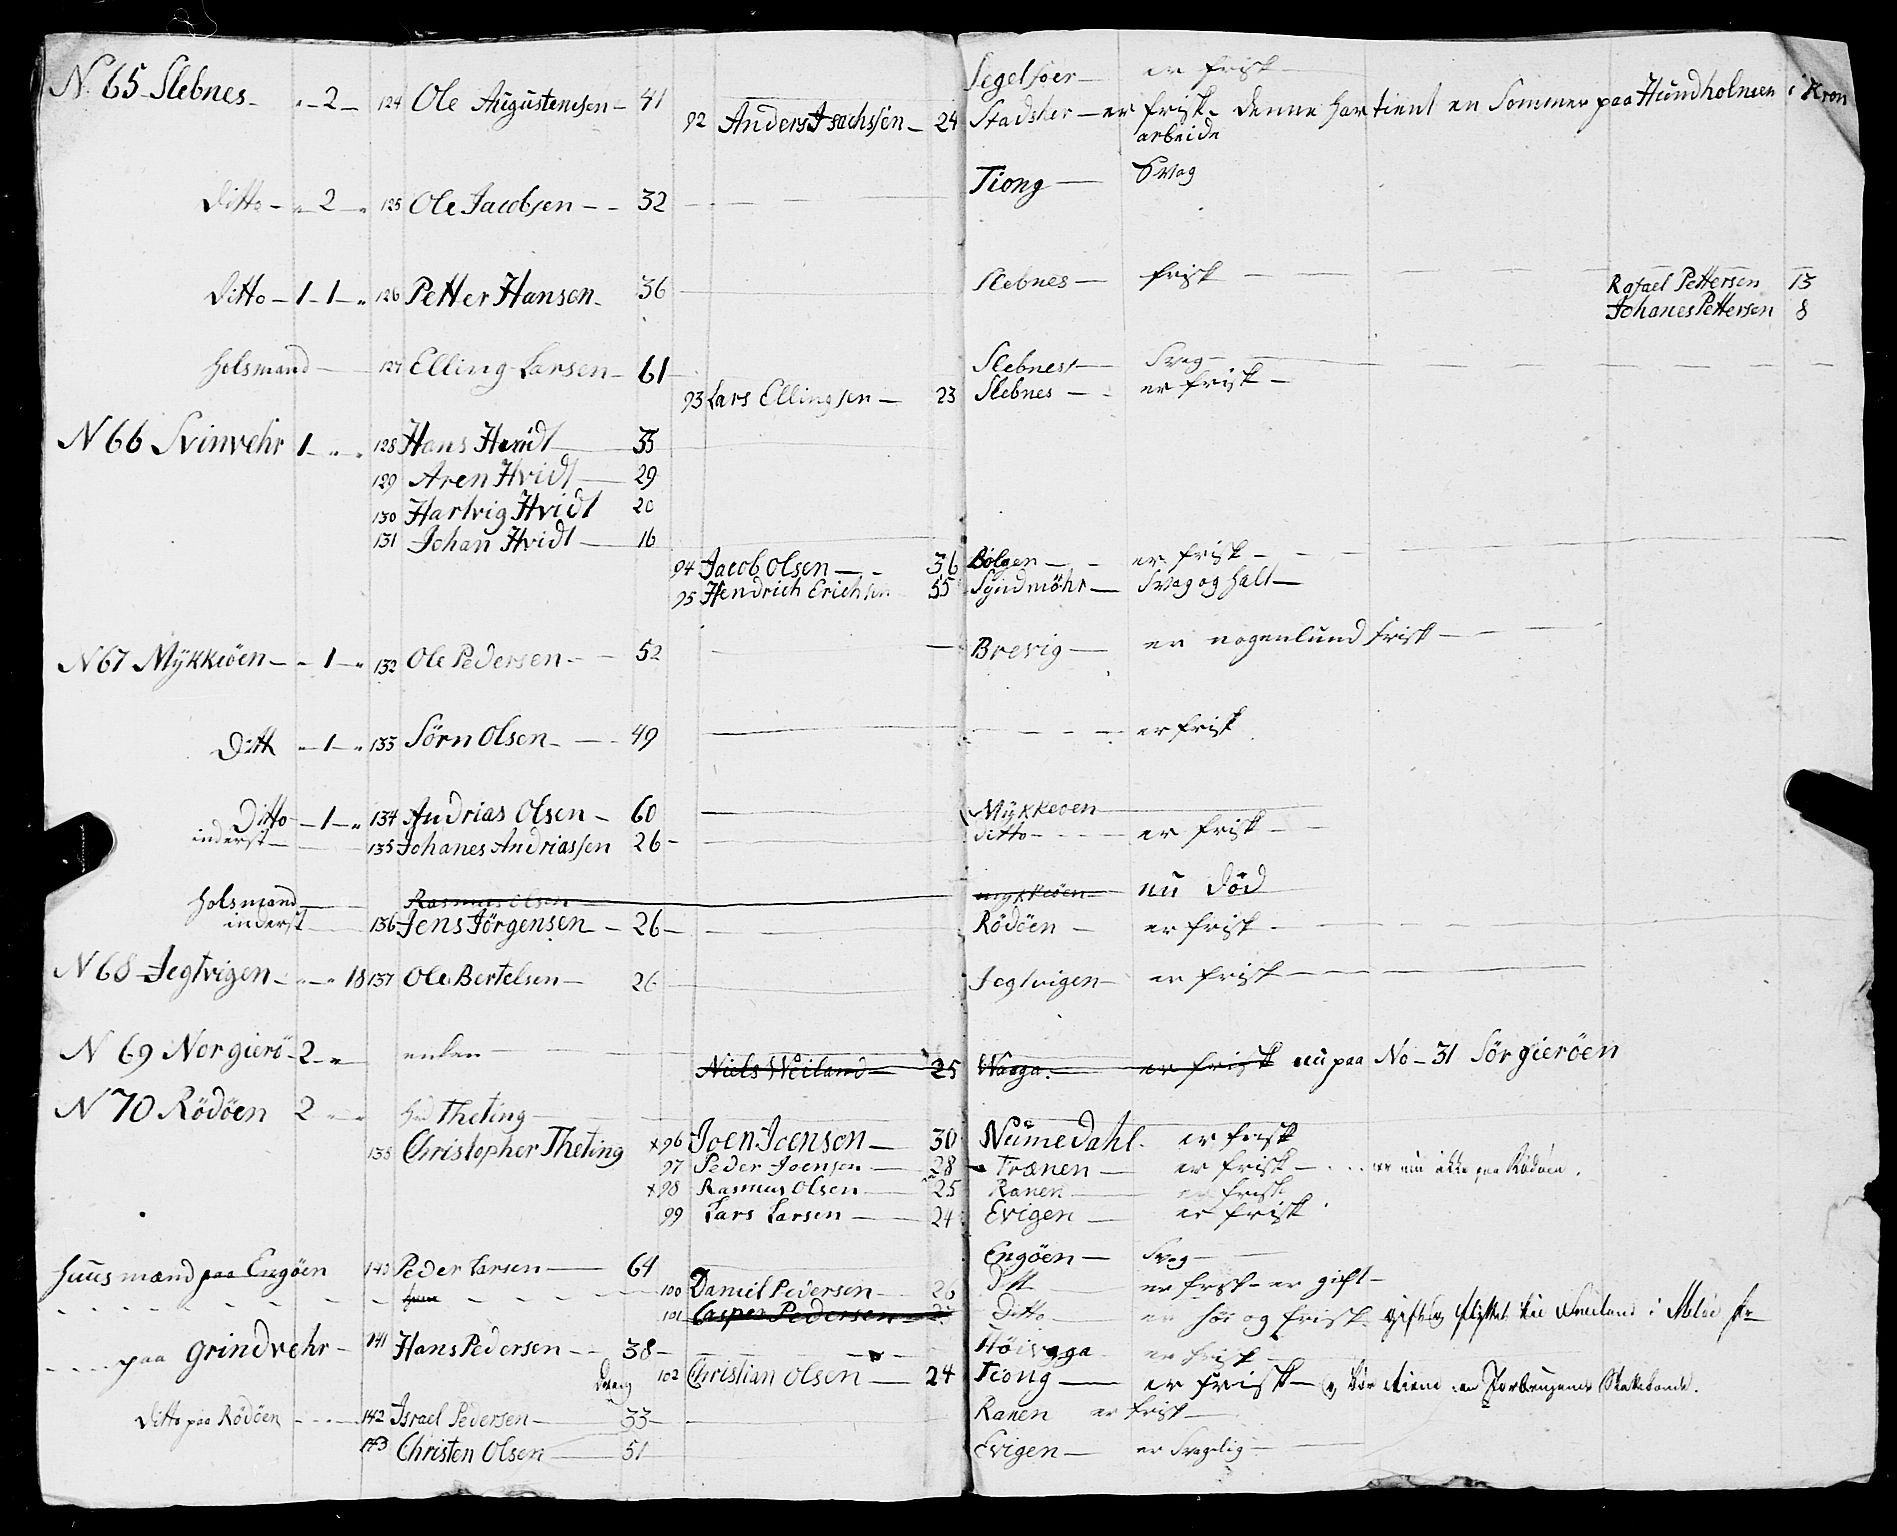 N. 65 Slebnes - " - 2 - 124 Ole Augustensen - 41 Segelfoer - er frisk
92 Anders Isachssen - 24 Stadsker - er frisk. denne har tient en Sommer paa Hundholmen i Kron
arbeide
Ditto - " 2 - " 125 Ole Jacobsen - - 32 Tiong - Svag
Ditto - 1 - 1 - " 126 Petter Hansen - 36 Slebnes - frisk Rafael Pettersen 13
Johanes Pettersen 8
Holsmand 127 Elling Larsen - 61 Slebnes - Svag -
93 Lars Ellingsen - 23 Slebnes - er frisk -
N 66 Svinvehr 1 - " " 128 Hans Hvidt 33
129 Aren Hvidt 29
130 Hartvig Hvidt 20
131 Johan Hvidt - 16
94 Jacob Olsen - - 36 Bolgen - - er frisk -
95 Hendrich Erichsen 55 Syndmöhr - Svag og halt -
N 67 Mÿkkeöen - - 1 - " 132 Ole Pedersen - - 52 Brevig - er nogenlund frisk -
Ditt " - 1 - " 133 Sörn Olsen - - 49 er frisk
Ditto - 1 - " 134 Andrias Olsen - 60 Mÿkkeoen
inderst - 135 Johanes Andriassen 26 - ditto - er frisk -
Holsmand Rasmus Olsen mykkeöen nu död
inderst 136 Jens Jörgensen - 26 - Rödöen - er frisk -
N 68 Jegtvigen - " - " 18 137 Ole Bertelsen - 26 Jegtvigen - er frisk -
N 69 Norgierö - 2 - " enken Niels Weiland - 25 Waaga. er frisk nu paa No - 31 Sörgieröen
N 70 Rödöen 2 - " Hr Theting
138 Christopher Theting x96 Joen Joensen - 30 Numedahl. er frisk
97 Peder Joensen - 28 - Trænen - er frisk - er nu ikke paa Rödöen.
x98 Rasmus Olsen - 25 Ranen er frisk
99 Lars Larsen - 24 Evigen - er frisk
Huusmænd paa Engöen 140 Peder Larsen - 64 Engöen - Svag -
100 Daniel Pedersen - 26 Ditt er frisk - er gift -
101 Casper Pedersen - Ditto er og frisk
paa Grindvehr - 141 Hans Pedersen - - 38 - er frisk
102 Christian Olsen - 24 Tiong - er frisk -
Ditto paa Rödöen - 142 Israel Pedersen - 33 - Ranen er frisk -
143 Christen Olsen 51 Evigen - er Svagelig -